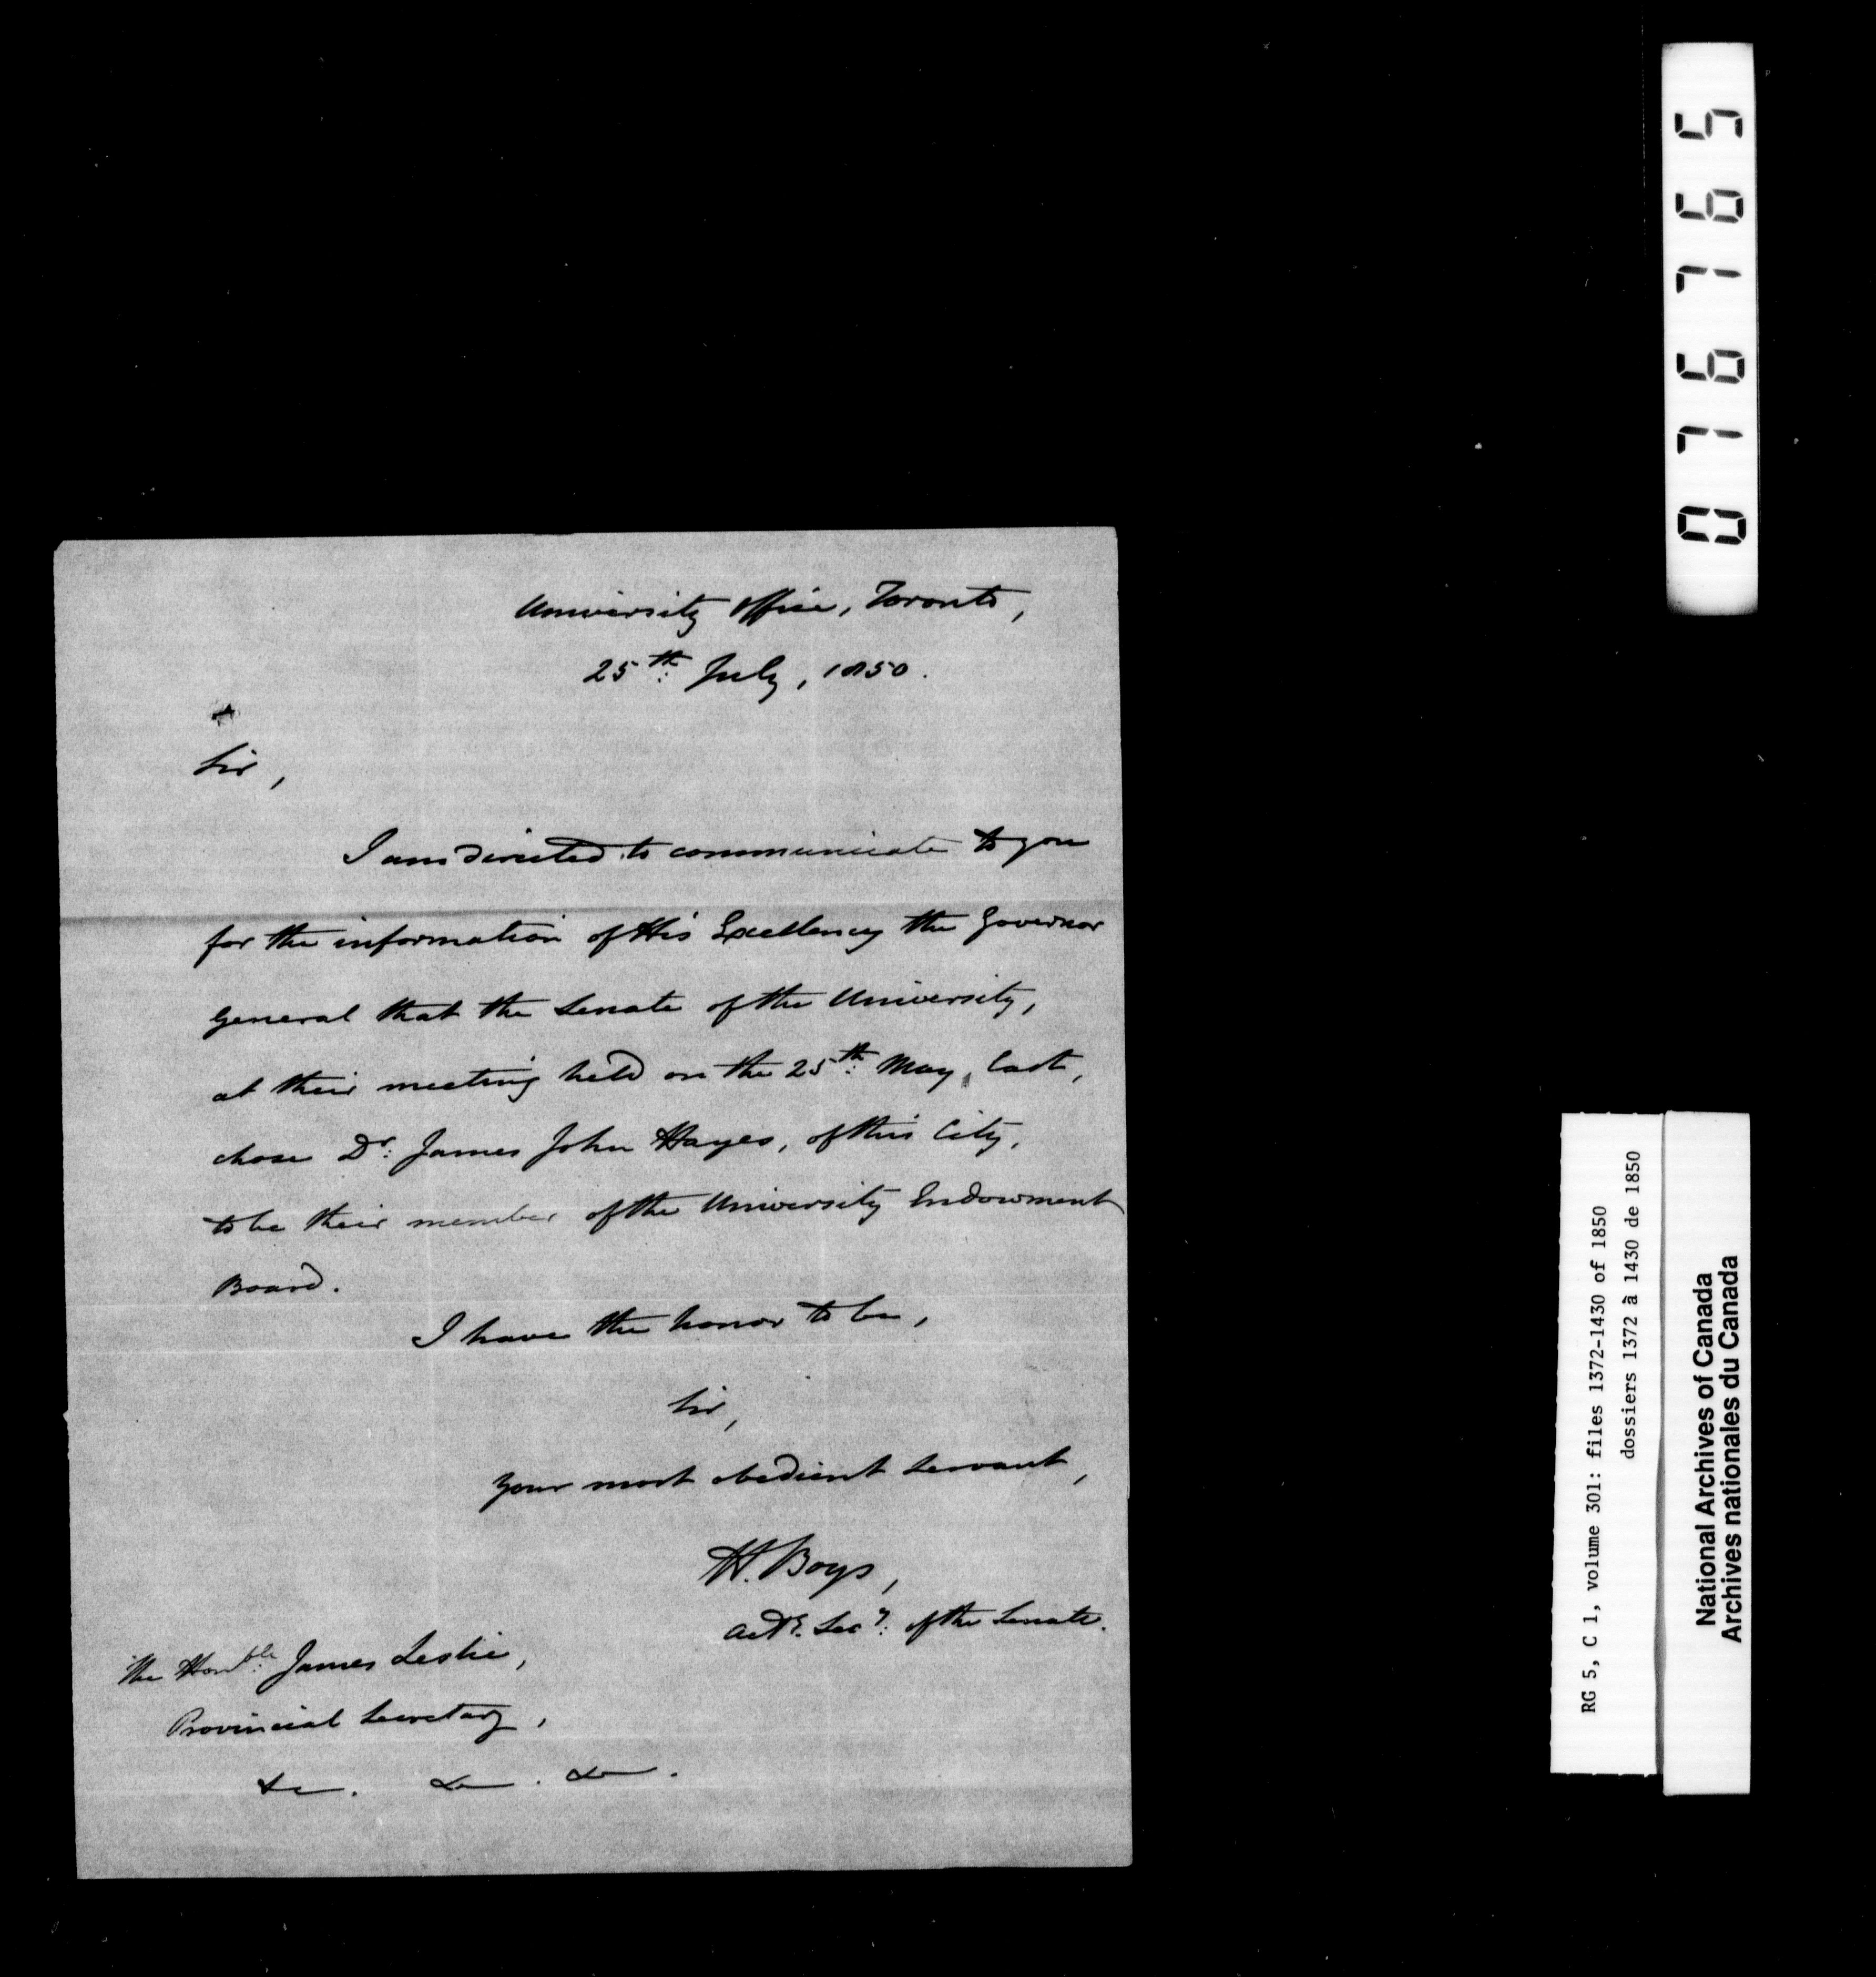 University Office, Toronto,
25th: July, 1850.
Sir,
I am directed to communicate to you
for the information of His Excellency the Governor
General that the Senate of the University,
at their meeting held on the 25th: May, last,
chose Dr: James John Hayes, of this City,
to be their member of the University Endowment
Board.
I have the honor to be,
Sir,
Your most obedient servant,
H. Boys,
Actg. Secy: of the Senate.
The Honble: James Leslie,
Provincial Secretary,
&c. &c. &c.
076765
RG 5, C 1, volume 301: files 1372-1430 of 1850
dossiers 1372 à 1430 de 1850
National Archives of Canada
Archives nationales du Canada